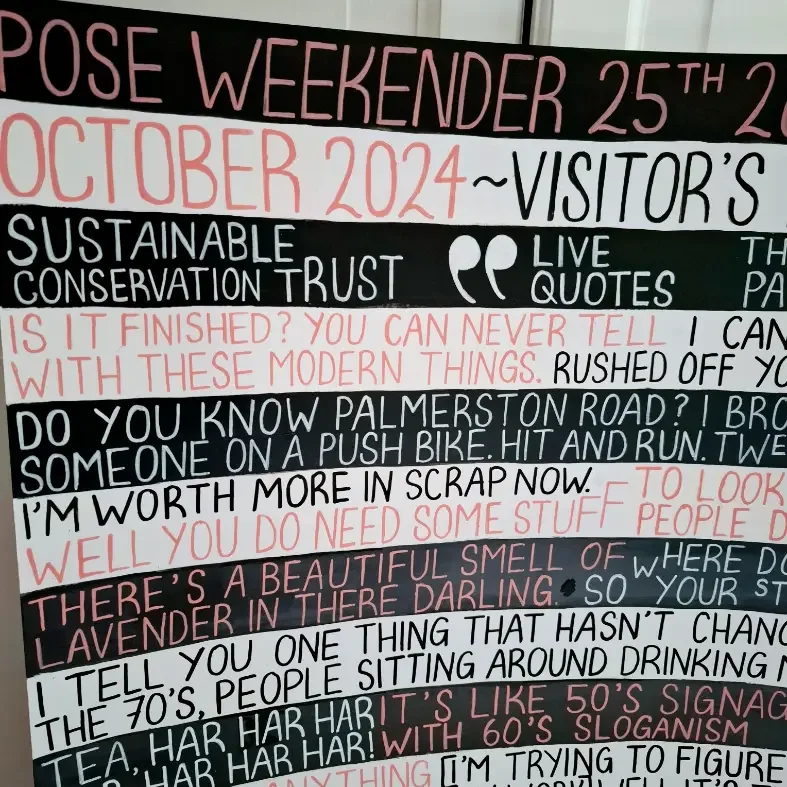 POSE WEEKENDER 25TH
OCTOBER 2024 ~VISITOR'S
SUSTAINABLE
CONSERVATION TRUST
LIVE
QUOTES
IS IT FINISHED? YOU CAN NEVER TELL I CAN
WITH THESE MODERN THINGS. RUSHED OFF
DO YOU KNOW PALMERSTON ROAD? I
SOMEONE ON A PUSH BIKE. HIT AND RUN.
I'M WORTH MORE IN SCRAP NOW. TO LOOK
WELL YOU DO NEED SOME STUFF PEOPLE
THERE'S A BEAUTIFUL SMELL OF WHERE
LAVENDER IN THERE DARLING. SO YOUR
I TELL YOU ONE THING THAT HASN'T
THE 70'S, PEOPLE SITTING AROUND DRINKING
TEA, HAR HAR HAR IT'S LIKE 50'S
HAR HAR HAR! WITH 60'S SLOGANISM
ANYTHING [I'M TRYING TO FIGURE